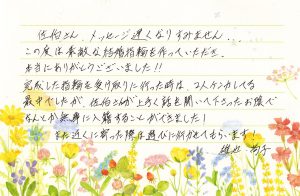 佐伯さん、メッセージ遅くなりすみません...
この度は素敵な結婚指輪を作っていただき
本当にありがとうございました!!
完成した指輪を受け取りに行った時は、2人ケンカしてる
最中でしたが、佐伯さんが上手く話を聞いて下さったお陰で
なんとか無事に入籍することができました!
また近くに寄った際は遊びに行かせてもらいます!